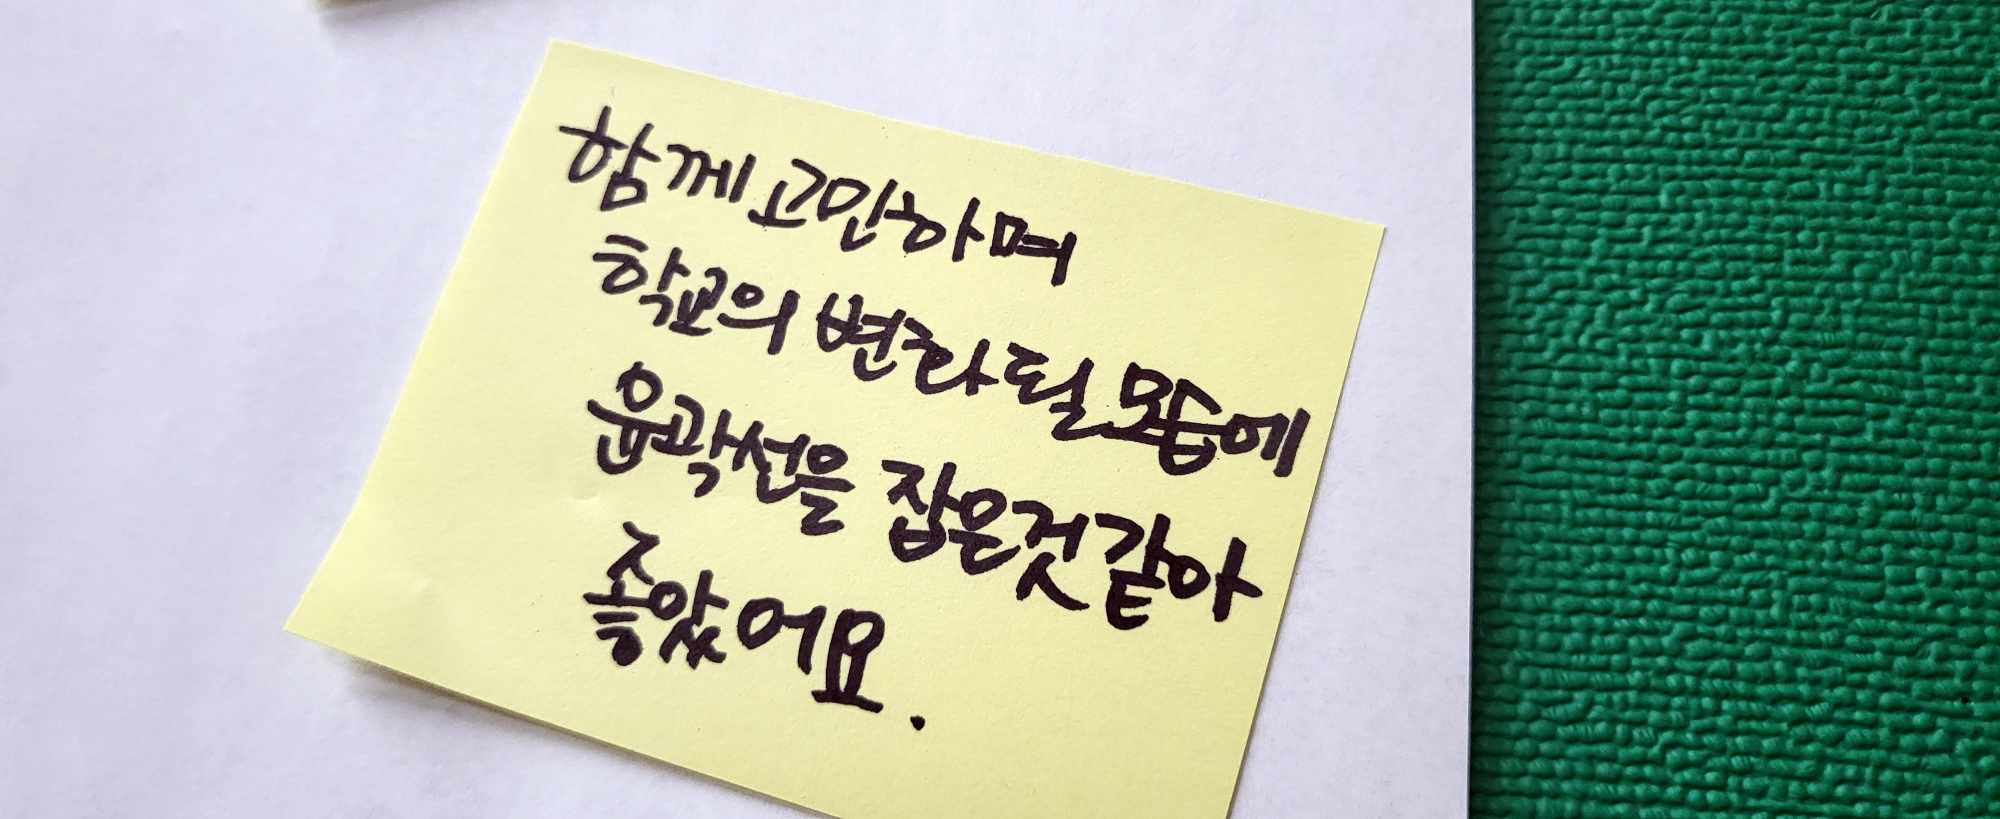 함께 고민하며
학교의 변화될 모습에
윤곽선을 잡은것 같아
좋았어요.